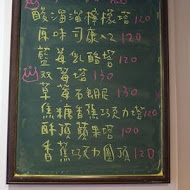 酸溜溜檸檬塔 120
原味司康x2 120
藍莓乳酪塔 120
双莓塔 130
草莓石朗尼 130
焦糖香蕉巧克力塔 120
酥頂蘋果塔 100
香蕉巧克力圓頂 120